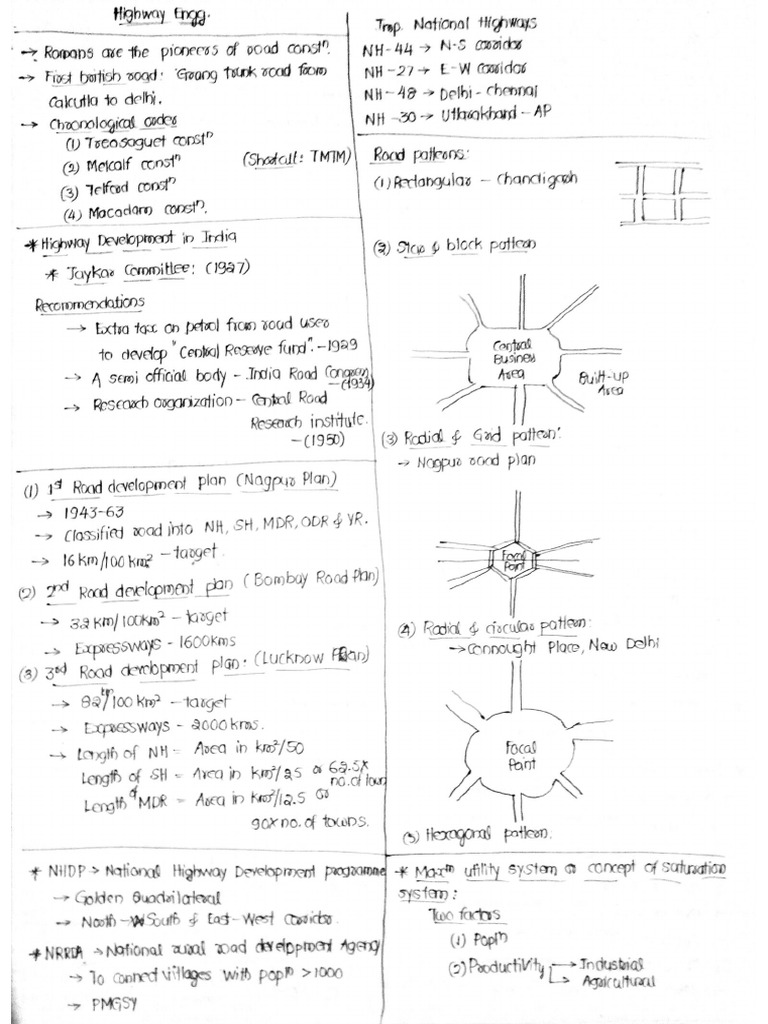 Highway Engg.
→ Romans are the pioneers of road constⁿ.
→ First british road: Grang trunk road from
Calcutta to delhi.
→ Chronological order
(1) Treasaguet constⁿ
(2) Metcalf constⁿ
(Shortcut: TMTM)
(3) Telford constⁿ
(4) Macadam constⁿ.
* Highway Development in India
* Jaykar Committee: (1927)
Recommendations
→ Extra tax on petrol from road user
to develop "Central Reserve fund". - 1929
→ A semi official body - India Road Congress
- (1934)
→ Research organization - Central Road
Research institute.
- (1950)
(1) 1st Road development plan (Nagpur Plan)
→ 1943-63
→ Classified road into NH, SH, MDR, ODR & VR.
→ 16 km/100km² - target.
(2) 2nd Road development plan (Bombay Road Plan)
→ 32 km/100km² - target
→ Expressways - 1600kms
(3) 3rd Road development plan: (Lucknow Plan)
→ 82 km/100km² - target
→ Expressways - 2000kms.
→ Length of NH = Area in km²/50
Length of SH = Area in km²/25 or 62.5x
no. of town
Length of MDR = Area in km²/12.5 or
90x no. of towns.
* NHDP → National Highway Development programme
→ Golden Quadrilateral
→ North - South & East-West Corridor.
* NRRDA → National rural road development Agency
→ To connect villages with popⁿ >1000
→ PMGSY
Imp. National Highways
NH-44 → N-S corridor
NH-27 → E-W corridor
NH-48 → Delhi - Chennai
NH-30 → Uttarakhand - AP
Road patterns:
(1) Rectangular - Chandigarh
(2) Star & block pattern
Central
Business
Area
Built-up
Area
(3) Radial & Grid pattern:
→ Nagpur road plan
Focal
Point
(4) Radial & circular pattern:
→ Connought Place, New Delhi
Focal
Point
(5) Hexagonal pattern.
* Maxᵐ utility system or concept of saturation
system:
Two factors
(1) Popⁿ
(2) Productivity → Industrial
→ Agricultural